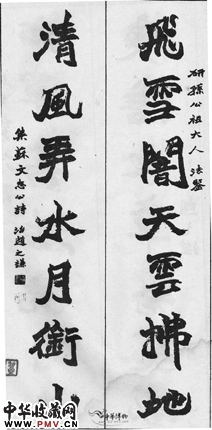 研孫公祖大人法鉴
飛雪闇天雲拂地
清風弄水月銜山
集蘇文忠公詩 治趙之謙
中华收藏网
WWW.PMV.CN